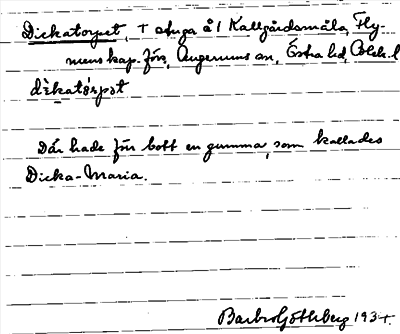 Dickatorpet, † stuga å 1 Kallgårdsmåla, Fly-
menskap. förs, Augerums sn, Östra hd, Blek. l
dìkatårpət
Där hade för bott en gumma, som kallades
Dicka-Maria.
Barbro Göthberg 1934.